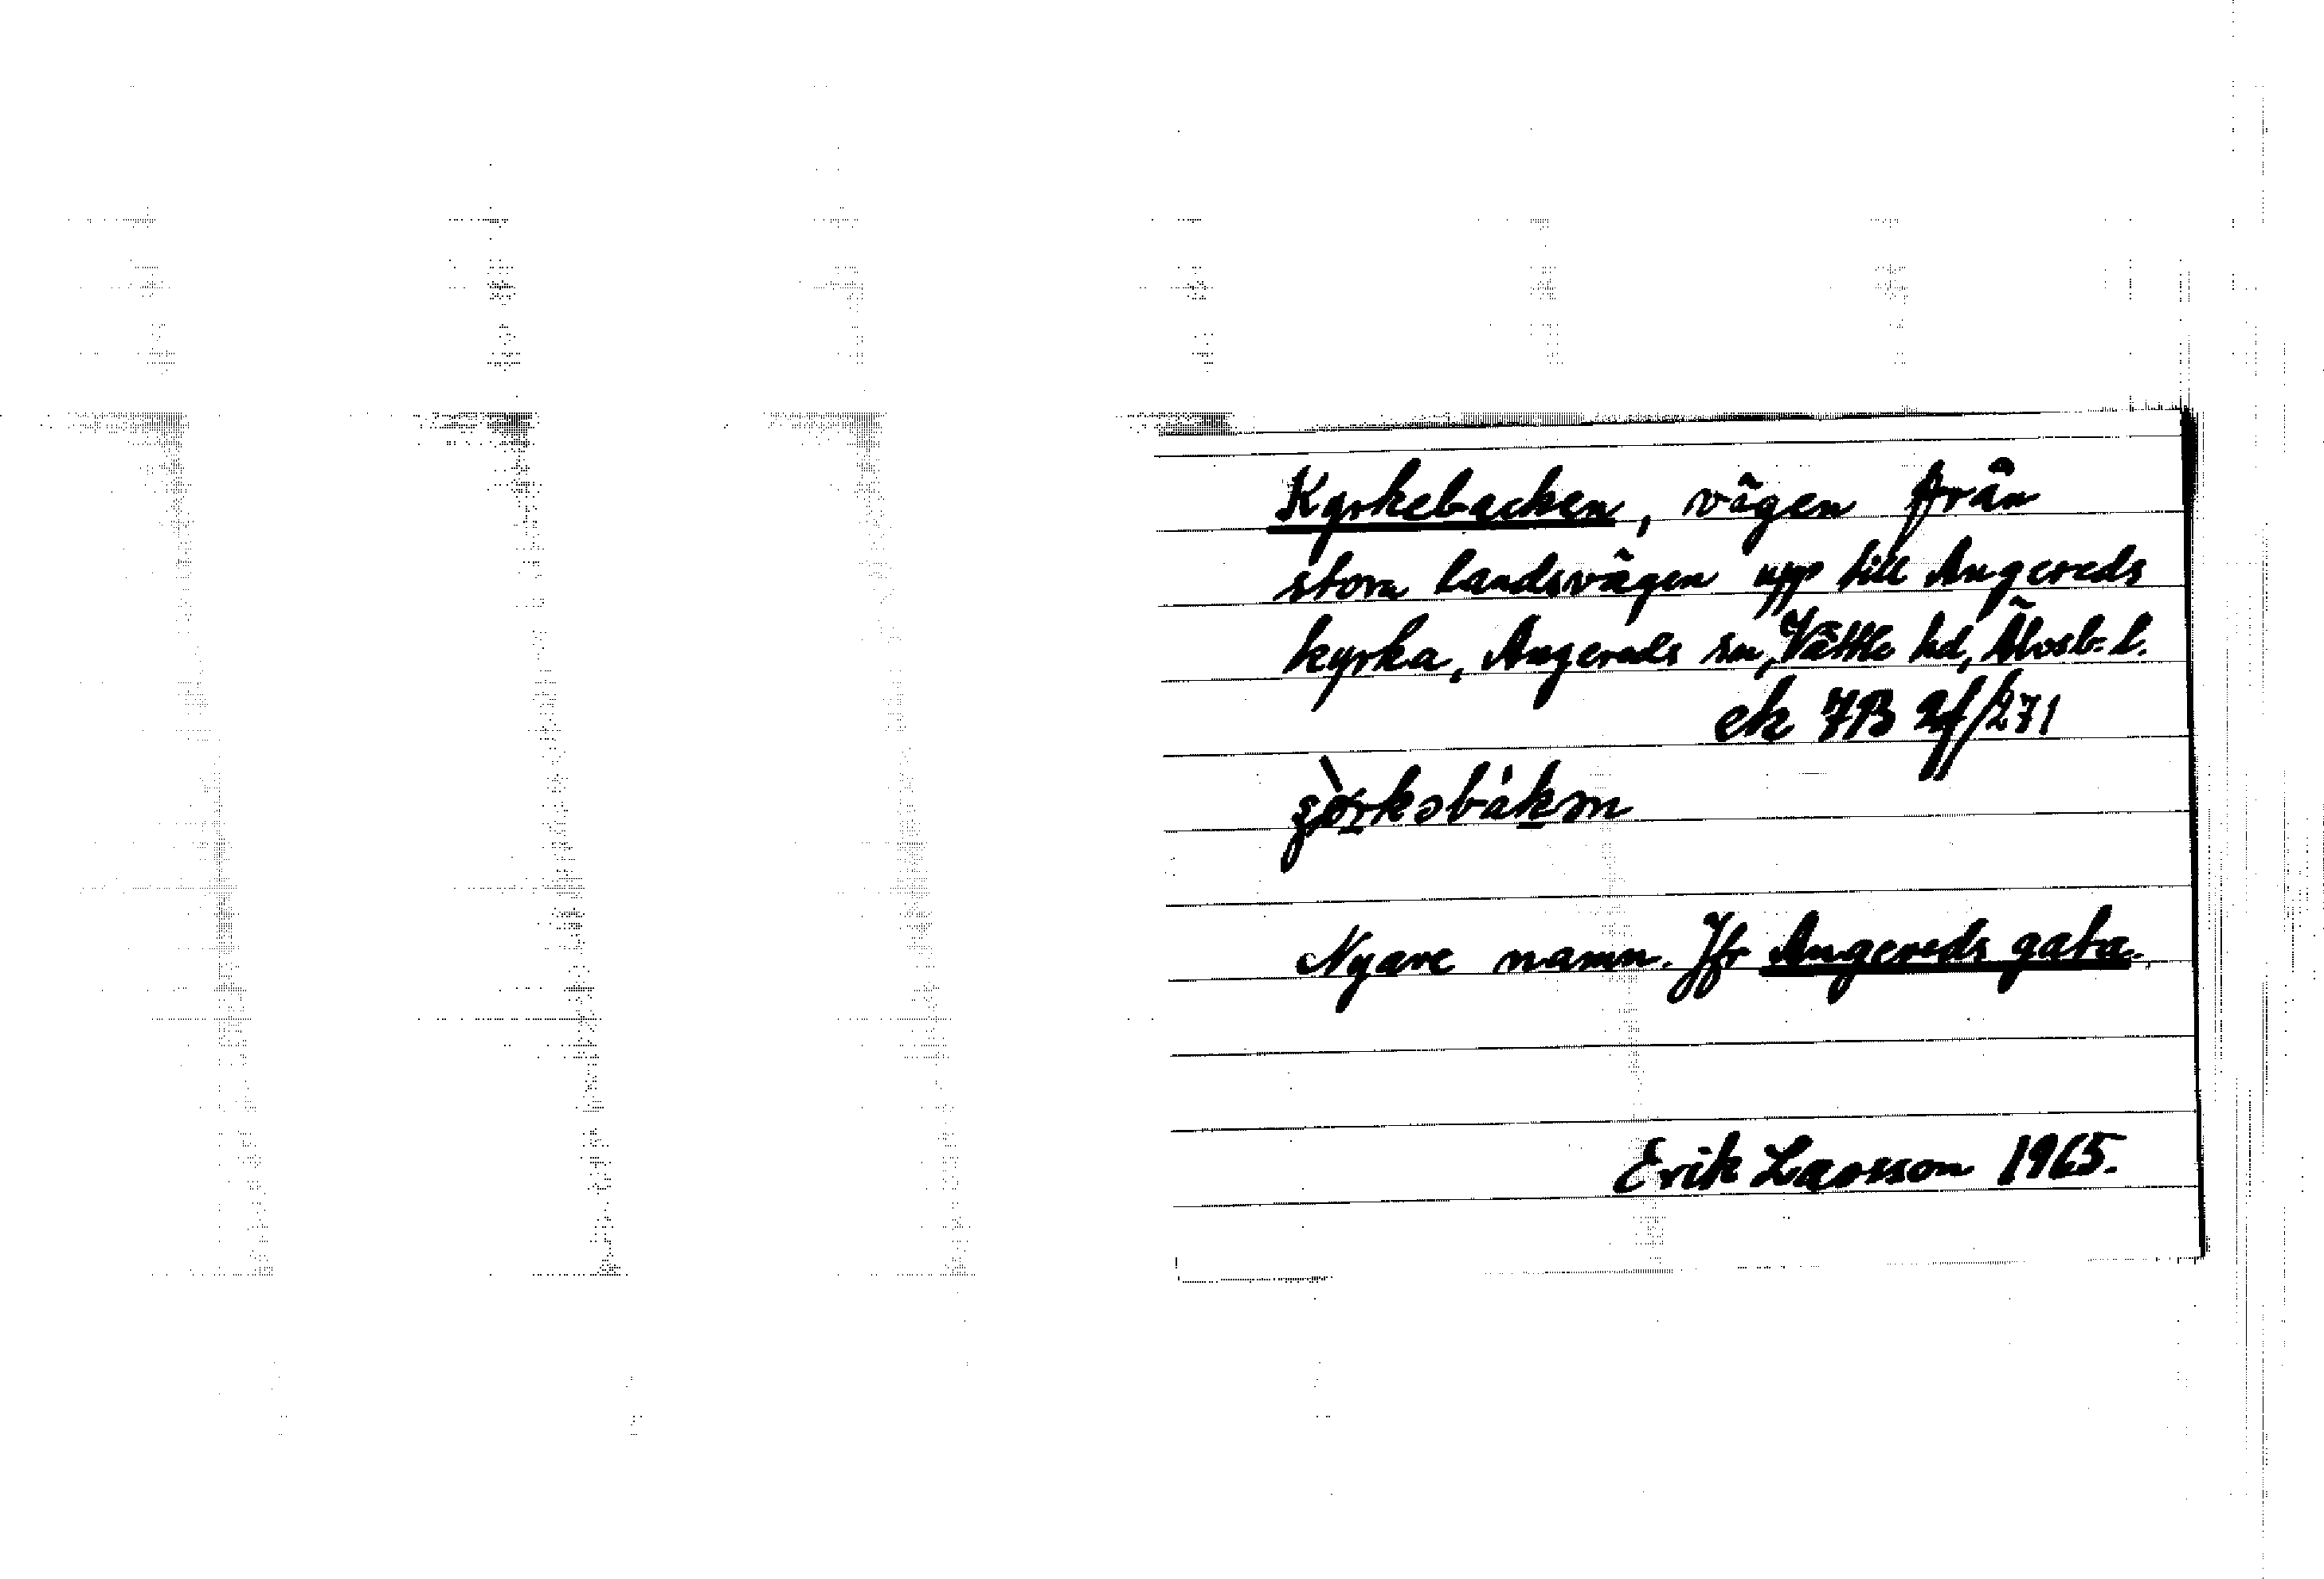 Kyrkebacken, vägen från
stora landsvägen upp till Angereds
kyrka, Angereds sn, Vättle hd, Älvsb. l.
ek 7B 2f/271
Nyare namn. Jfr Angereds gata.
Erik Larsson 1965.